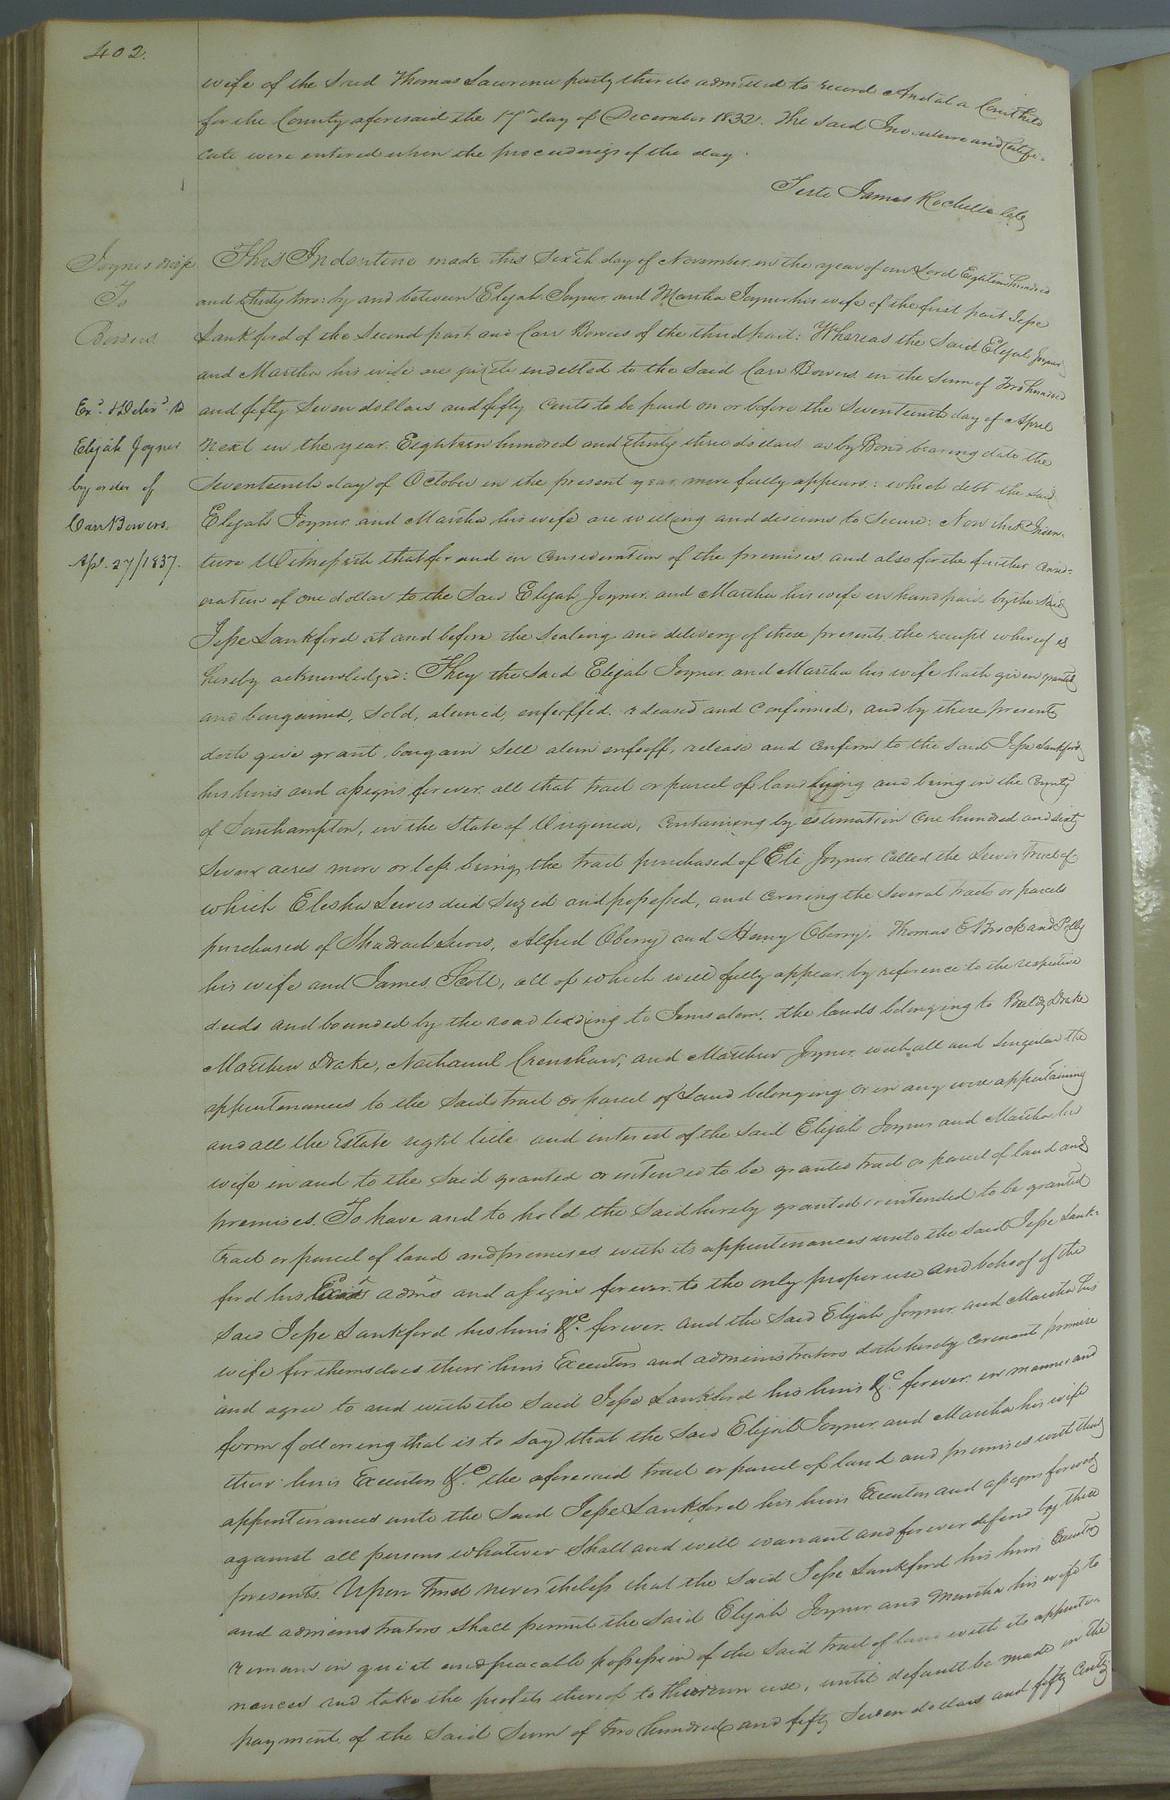 402.
wife of the Said Thomas Lawrence party thereto admitted to record And at a Court held
for the County aforesaid the 17th day of December 1832. The Said Indenture and Certifi-
cate were entered upon the proceedings of the day.
Teste James Rochelle Clk
Joyner & wife
To
Bowers
Exd. & Delivd. to
Elijah Joyner
by order of
Carr Bowers.
Apl. 27/1837.
This Indenture made this Sixth day of November in the year of our Lord Eighteen hundred
and thirty two: by and between Elijah Joyner and Martha Joyner his wife of the first part Jesse
Lankford of the Second part and Carr Bowers of the third part: Whereas the Said Elijah Joyner
and Martha his wife are justly indebted to the Said Carr Bowers in the Sum of Two hundred
and fifty Seven dollars and fifty Cents to be paid on or before the Seventeenth day of April
next in the year Eighteen hundred and thirty three dollars as by Bond bearing date the
Seventeenth day of October in the present year more fully appears: which debt the said
Elijah Joyner and Martha his wife are willing and desirous to Secure: Now this Inden-
ture Witnesseth that for and in Consideration of the premises and also for the further Consid-
eration of one dollar to the Said Elijah Joyner and Martha his wife in hand paid by the Said
Jesse Lankford at and before the Sealing and delivery of these presents, the receipt whereof is
hereby acknowledged: They the Said Elijah Joyner and Martha his wife hath given granted
and bargained, Sold, aliened, enfeoffed, released and Confirmed, and by these presents
doth give grant bargain Sell alien enfeoff, release and Confirm to the Said Jesse Lankford
his heirs and assigns forever all that tract or parcel of land lying and being in the County
of Southampton, in the State of Virginia, Containing by estimation One hundred and sixty
Seven acres more or less being the tract purchased of Eli Joyner Called the Lewis tract of
which Elisha Lewis died Seized and possessed, and Covering the Several tracts or parcels
purchased of Shadrach Lewis, Alfred Oberry and Henry Oberry, Thomas and Polly
his wife and James Scott, all of which will fully appear by reference to the respective
deeds and bounded by the road leading to Jerusalem, the lands belonging to Drake
Matthew Drake, Nathaniel Crenshaw, and Matthew Joyner with all and Singular the
appurtenances to the Said tract or parcel of Land belonging or in any wise appertaining
and all the Estate right title and interest of the Said Elijah Joyner and Martha his
wife in and to the Said granted or intended to be granted tract or parcel of land and
premises. To have and to hold the Said hereby granted or intended to be granted
tract or parcel of land and premises with its appurtenances unto the Said Jesse Lank-
ford his adms and assigns forever to the only proper use and behoof of the
Said Jesse Lankford his heirs &c. forever. and the Said Elijah Joyner and Martha his
wife for themselves their heirs Executors and administrators doth hereby Covenant promise
and agree to and with the Said Jesse Lankford his heirs &c. forever in manner and
form following that is to Say that the Said Elijah Joyner and Martha his wife
their heirs Executors &c. the aforesaid tract or parcel of land and premises with its
appurtenances unto the Said Jesse Lankford his heirs Executors and assigns forever
against all persons whatever Shall and will warrant and forever defend by these
presents. Upon Trust nevertheless that the Said Jesse Lankford his heirs Executors
and administrators Shall permit the Said Elijah Joyner and Martha his wife to
remain in quiet and peaceable possession of the Said tract of land with its appurte-
nances and take the profits thereof to their own use, until default be made in the
payment of the Said Sum of two hundred and fifty Seven dollars and fifty Cents